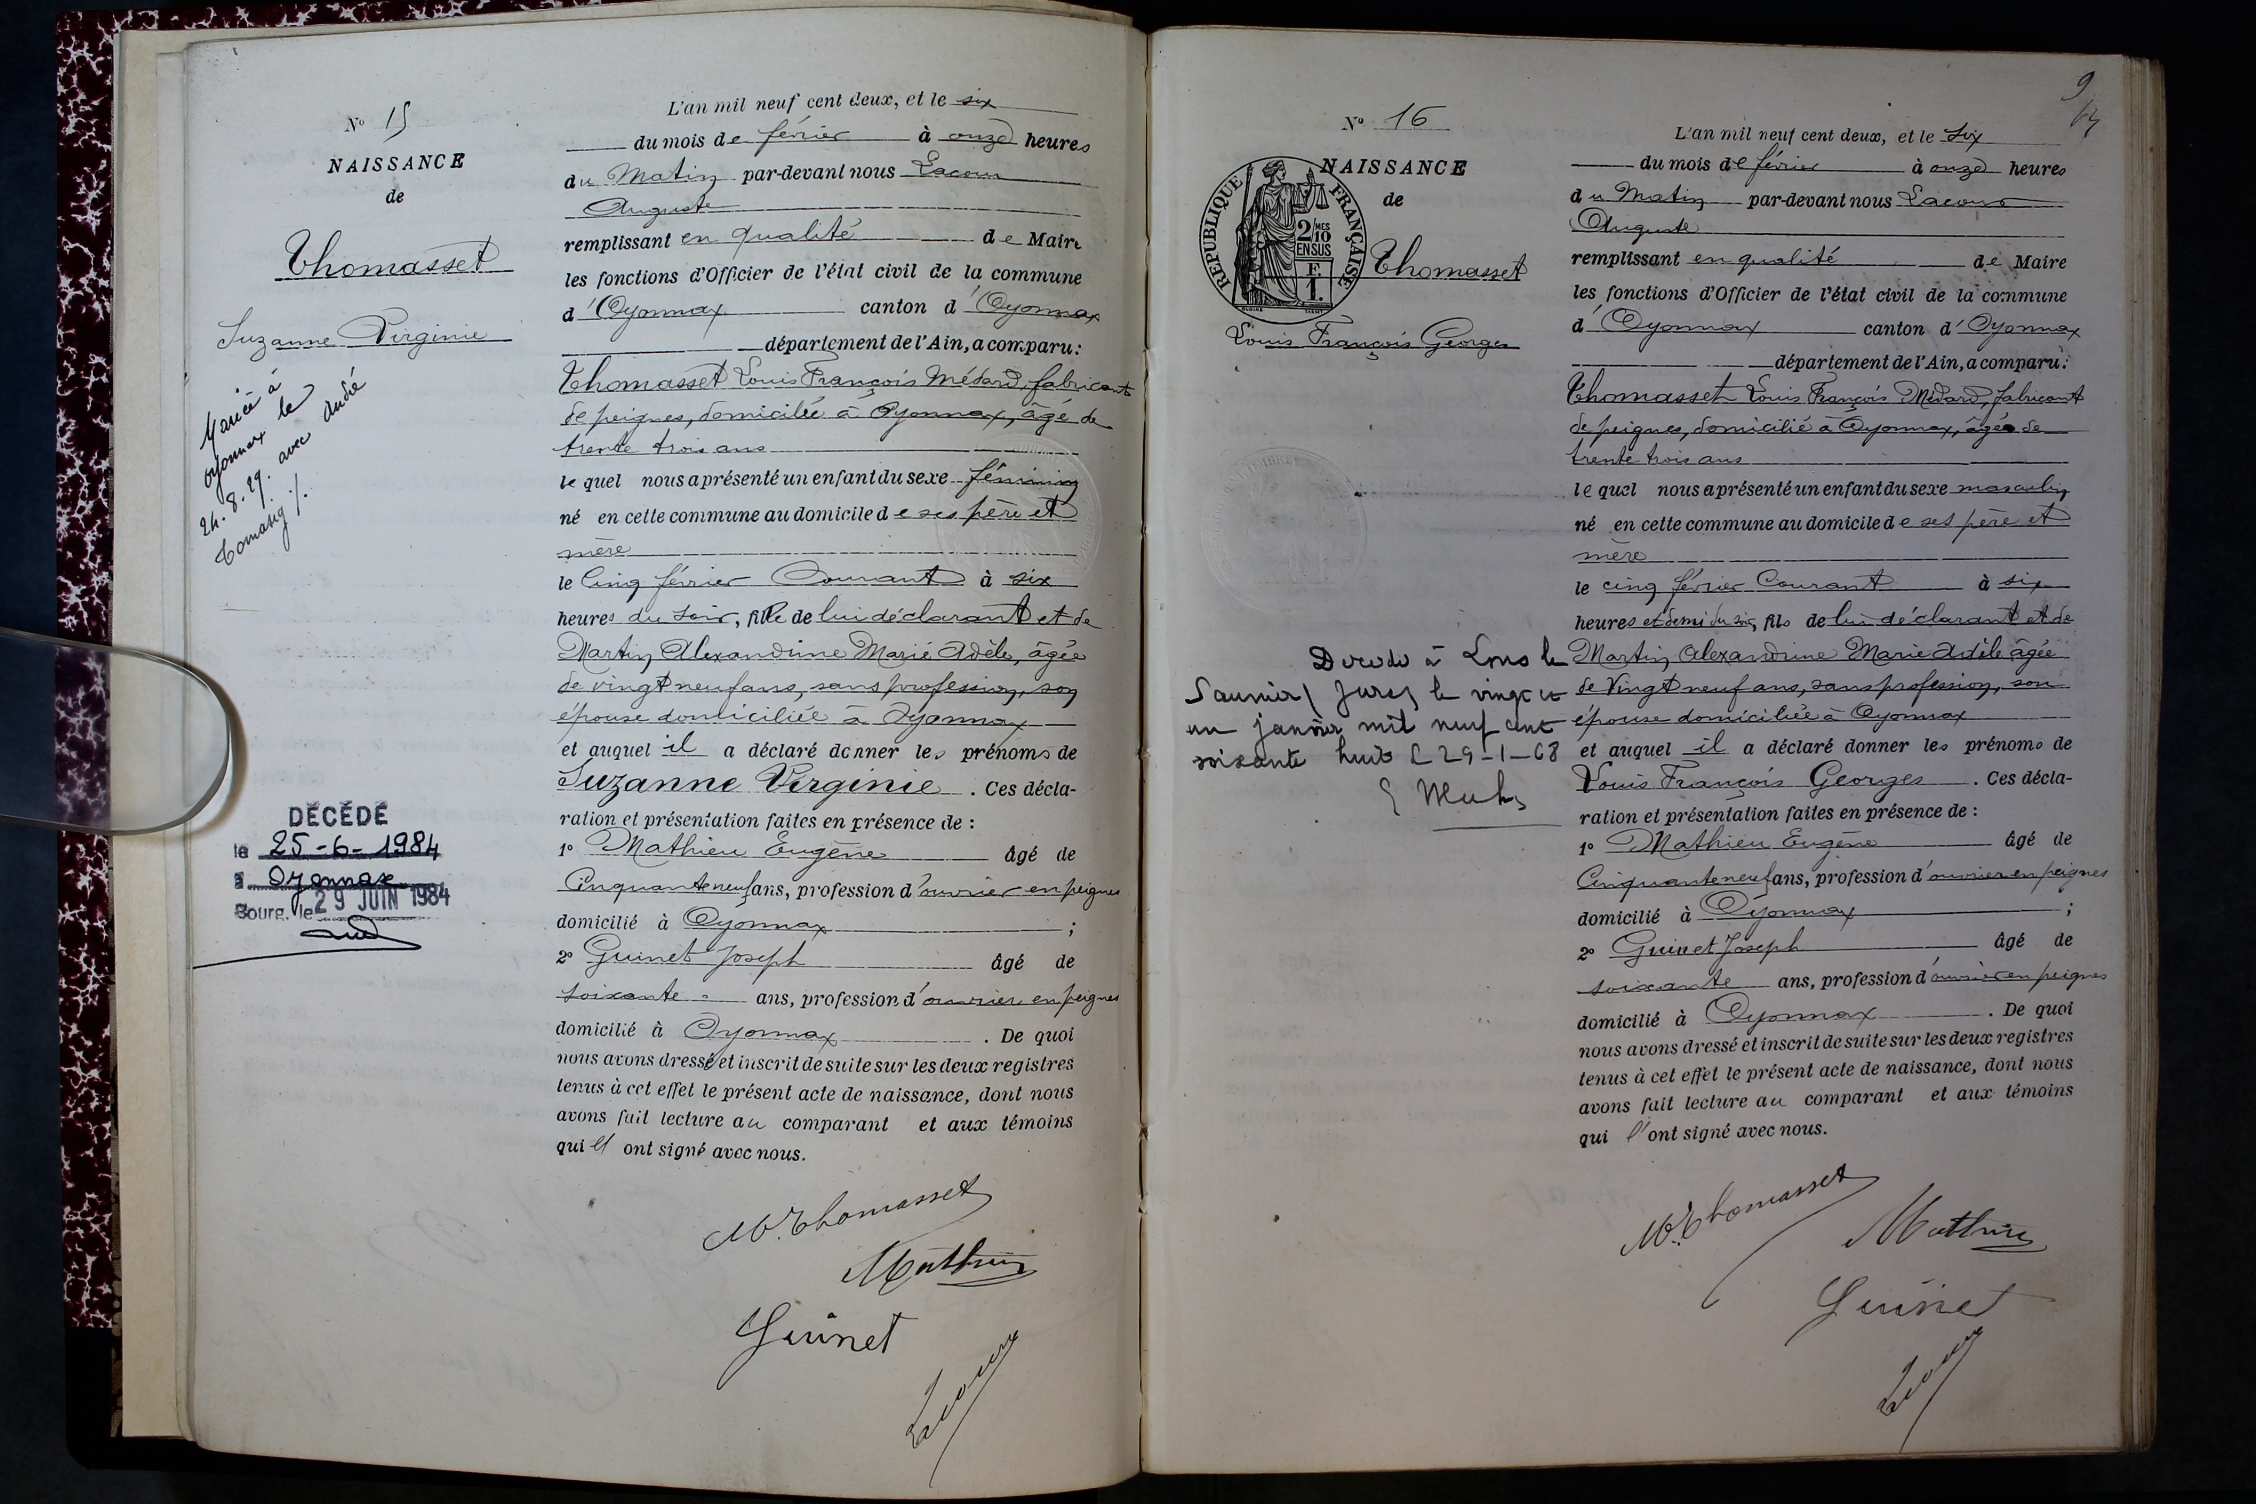 N° 15
NAISSANCE
de
Thomasset
Suzanne Virginie
Mariée à
Oyonnax le
24. 8. 29. avec André
DÉCÉDÉ
le 25-6-1984
à Oyonnax
Bourg, le 29 JUIN 1984
L'an mil neuf cent deux, et le six
du mois de février à onze heures
du Matin par-devant nous Lacour
Auguste
remplissant en qualité de Maire
les fonctions d'Officier de l'état civil de la commune
d'Oyonnax canton d'Oyonnax
département de l'Ain, a comparu:
Thomasset Louis François Médard, fabricant
de peignes, domiciliée à Oyonnax, âgé de
trente trois ans
le quel nous a présenté un enfant du sexe féminin
né en cette commune au domicile de ses père et
mère
le Cinq février Courant à six
heures du soir, fille de lui déclarant et de
Martin Alexandrine Marie Adèle, âgée
de vingt neuf ans, sans profession, son
épouse domiciliée à Oyonnax
et auquel il a déclaré donner les prénoms de
Suzanne Virginie . Ces décla-
ration et présentation faites en présence de :
1° Mathieu Eugène âgé de
Cinquante neuf ans, profession d'ouvrier en peignes
domicilié à Oyonnax ;
2° Guinet Joseph âgé de
soixante ans, profession d'ouvrier en peignes
domicilié à Oyonnax . De quoi
nous avons dressé et inscrit de suite sur les deux registres
tenus à cet effet le présent acte de naissance, dont nous
avons fait lecture au comparant et aux témoins
qui l' ont signé avec nous.
M. Thomasset
Mathieu
Guinet
Lacour
9
N° 16
NAISSANCE
de
RÉPUBLIQUE FRANÇAISE
2/10 MES
EN SUS
F.
1.
Thomasset
Louis François Georges
Décédé à Lons le
Saunier (Jura) le vingt et
un janvier mil neuf cent
soixante huit L 29-1-68
L'an mil neuf cent deux, et le Six
du mois de février à onze heures
du Matin par-devant nous Lacour
Auguste
remplissant en qualité de Maire
les fonctions d'Officier de l'état civil de la commune
d'Oyonnax canton d'Oyonnax
département de l'Ain, a comparu:
Thomasset Louis François Médard, fabricant
de peignes, domicilié à Oyonnax, âgé de
trente trois ans
le quel nous a présenté un enfant du sexe masculin
né en cette commune au domicile de ses père et
mère
le cinq février Courant à six
heures et demi du soir, fils de lui déclarant et de
Martin Alexandrine Marie Adèle âgée
de Vingt neuf ans, sans profession, son
épouse domiciliée à Oyonnax
et auquel il a déclaré donner les prénoms de
Louis François Georges . Ces décla-
ration et présentation faites en présence de :
1° Mathieu Eugène âgé de
Cinquante neuf ans, profession d'ouvrier en peignes
domicilié à Oyonnax ;
2° Guinet Joseph âgé de
soixante ans, profession d'ouvrier en peignes
domicilié à Oyonnax . De quoi
nous avons dressé et inscrit de suite sur les deux registres
tenus à cet effet le présent acte de naissance, dont nous
avons fait lecture au comparant et aux témoins
qui l'ont signé avec nous.
M. Thomasset
Mathieu
Guinet
Lacour